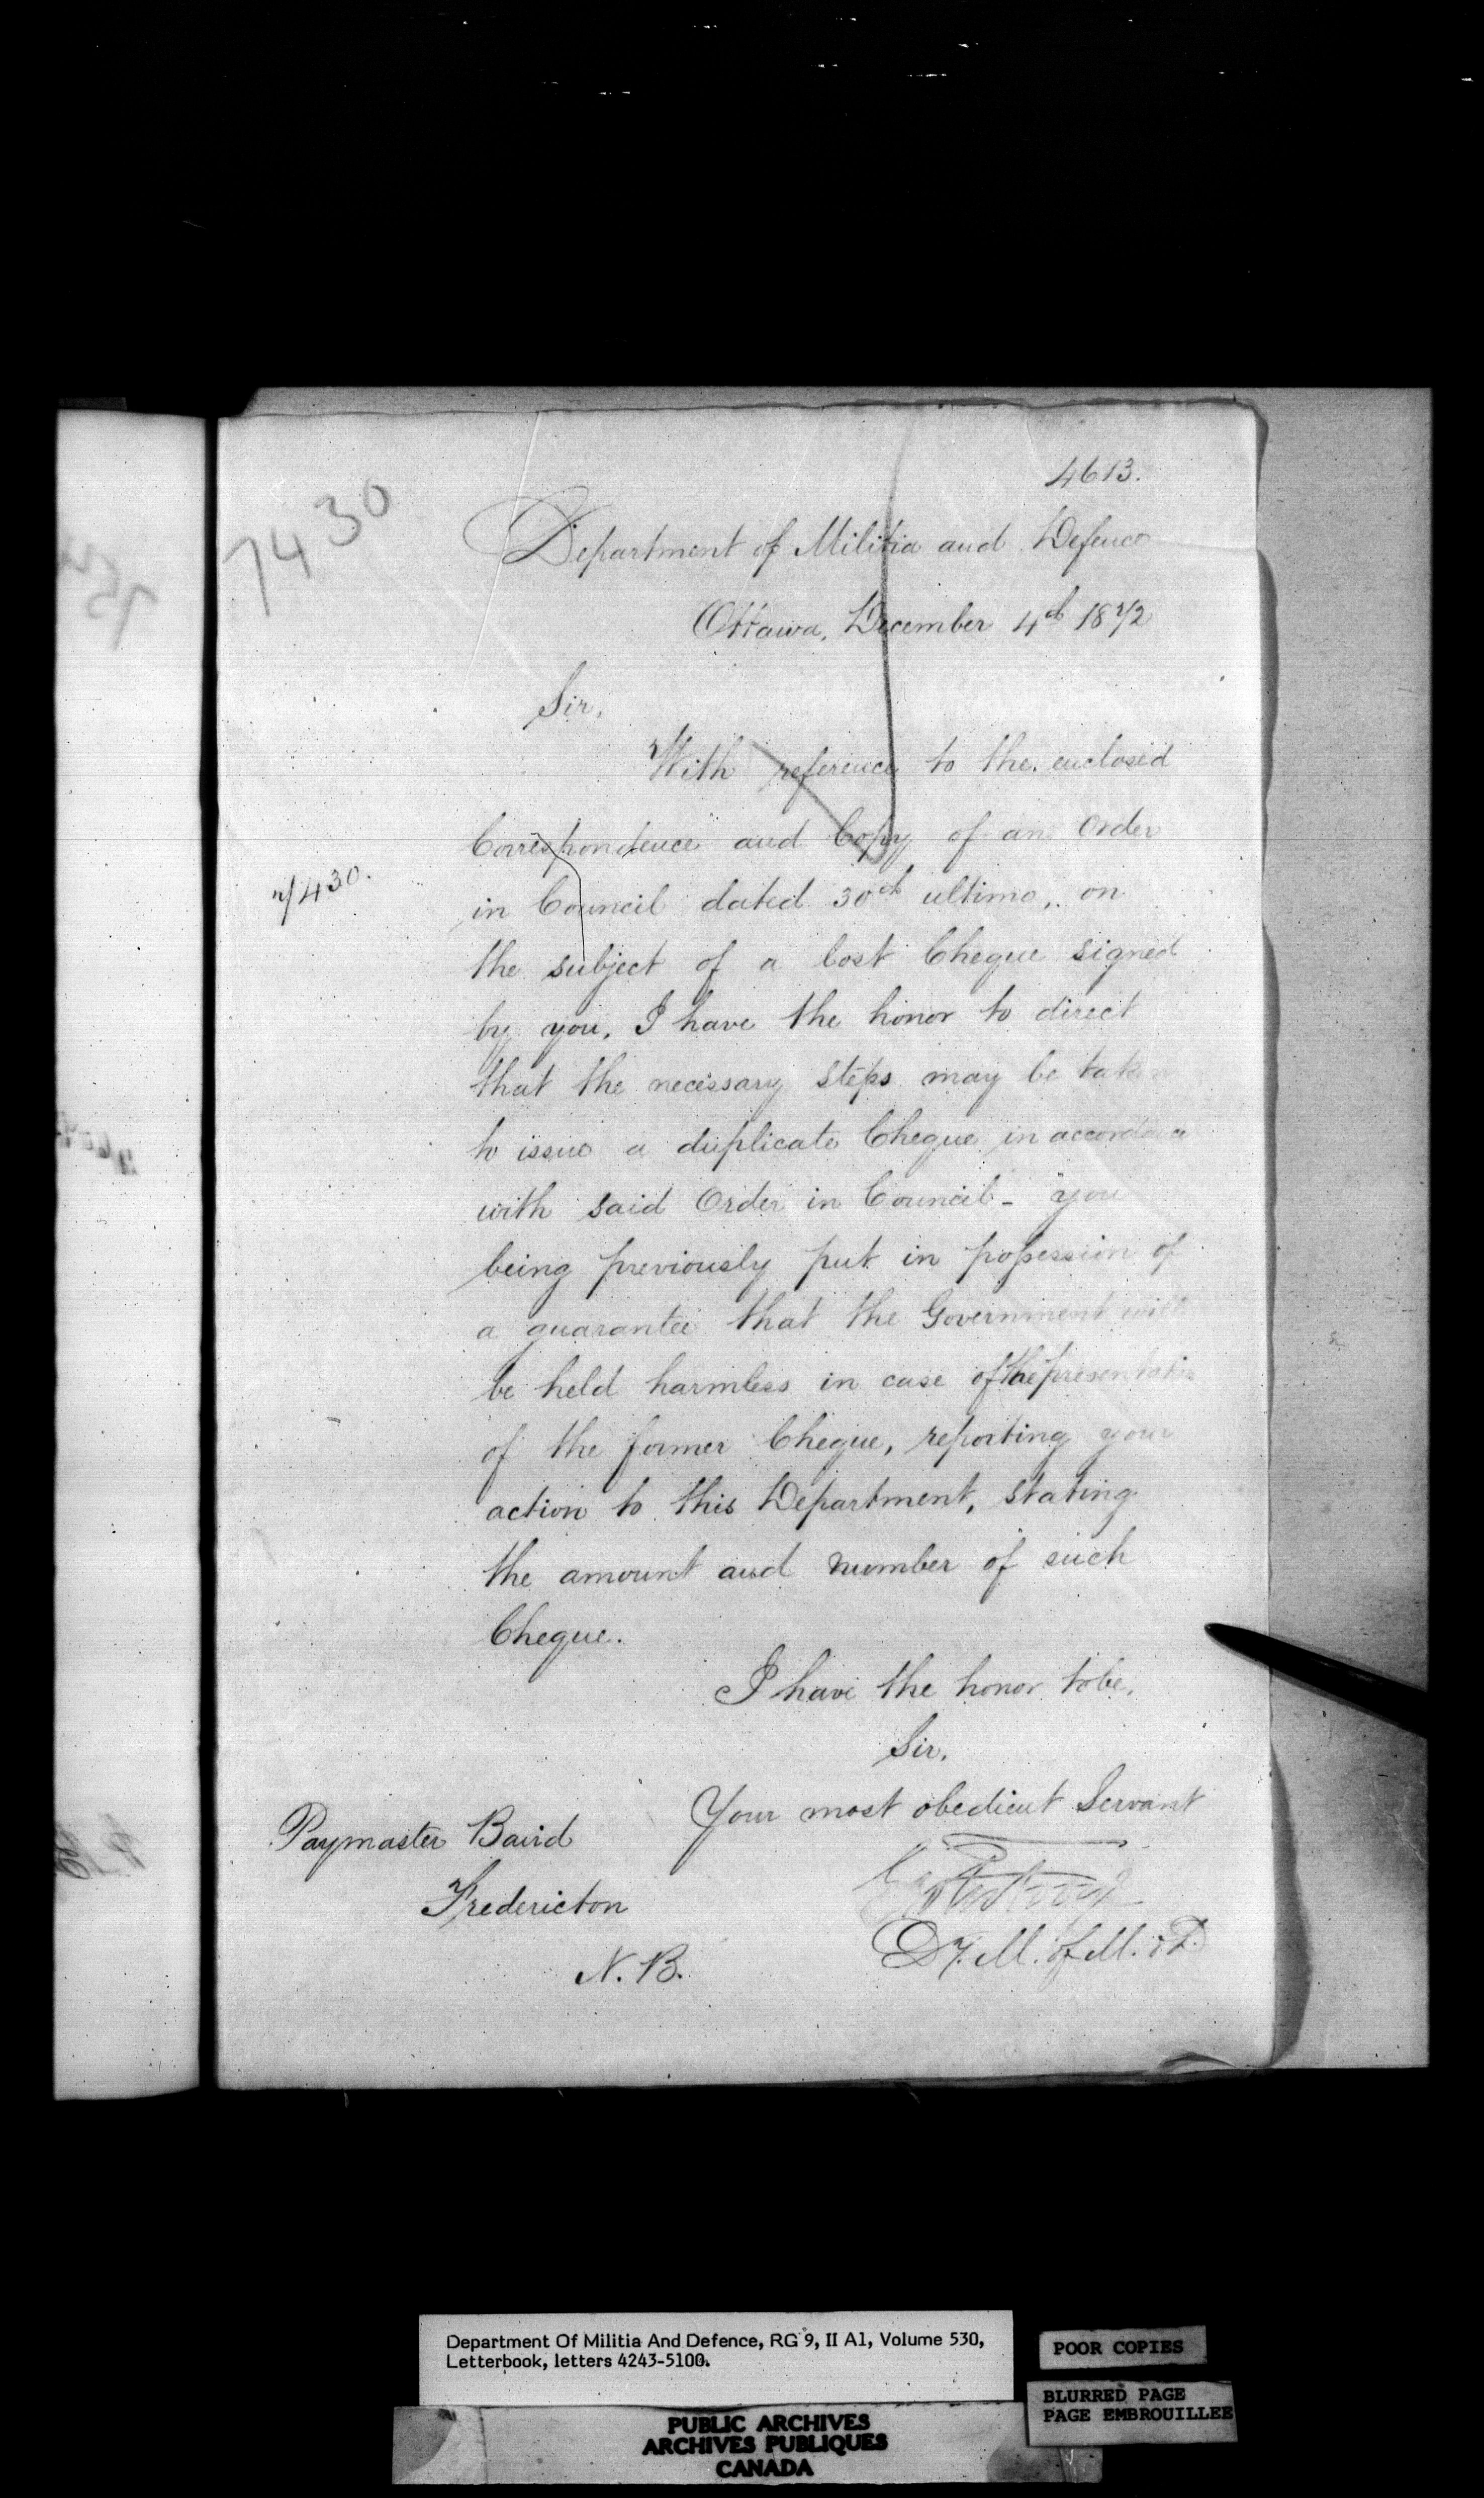 4613.
7430
Department of Militia and Defence
Ottawa, December 4th 1872
Sir,
With reference to the enclosed
Correspondence and Copy of an Order
7430.
in Council dated 30th ultimo, on
the subject of a lost Cheque signed
by you, I have the honor to direct
that the necessary steps may be taken
to issue a duplicate Cheque in accordance
with said Order in Council - you
being previously put in possession of
a guarantee that the Government will
be held harmless in case of the presentation
of the former Cheque, reporting your
action to this Department, stating
the amount and number of such
Cheque.
I have the honor to be,
Sir,
Your most obedient Servant
Paymaster Baird
Fredericton
N. B.
Dy. M. of M. & D.
Department Of Militia And Defence, RG 9, II A1, Volume 530,
Letterbook, letters 4243-5100.
POOR COPIES
BLURRED PAGE
PAGE EMBROUILLEE
PUBLIC ARCHIVES
ARCHIVES PUBLIQUES
CANADA